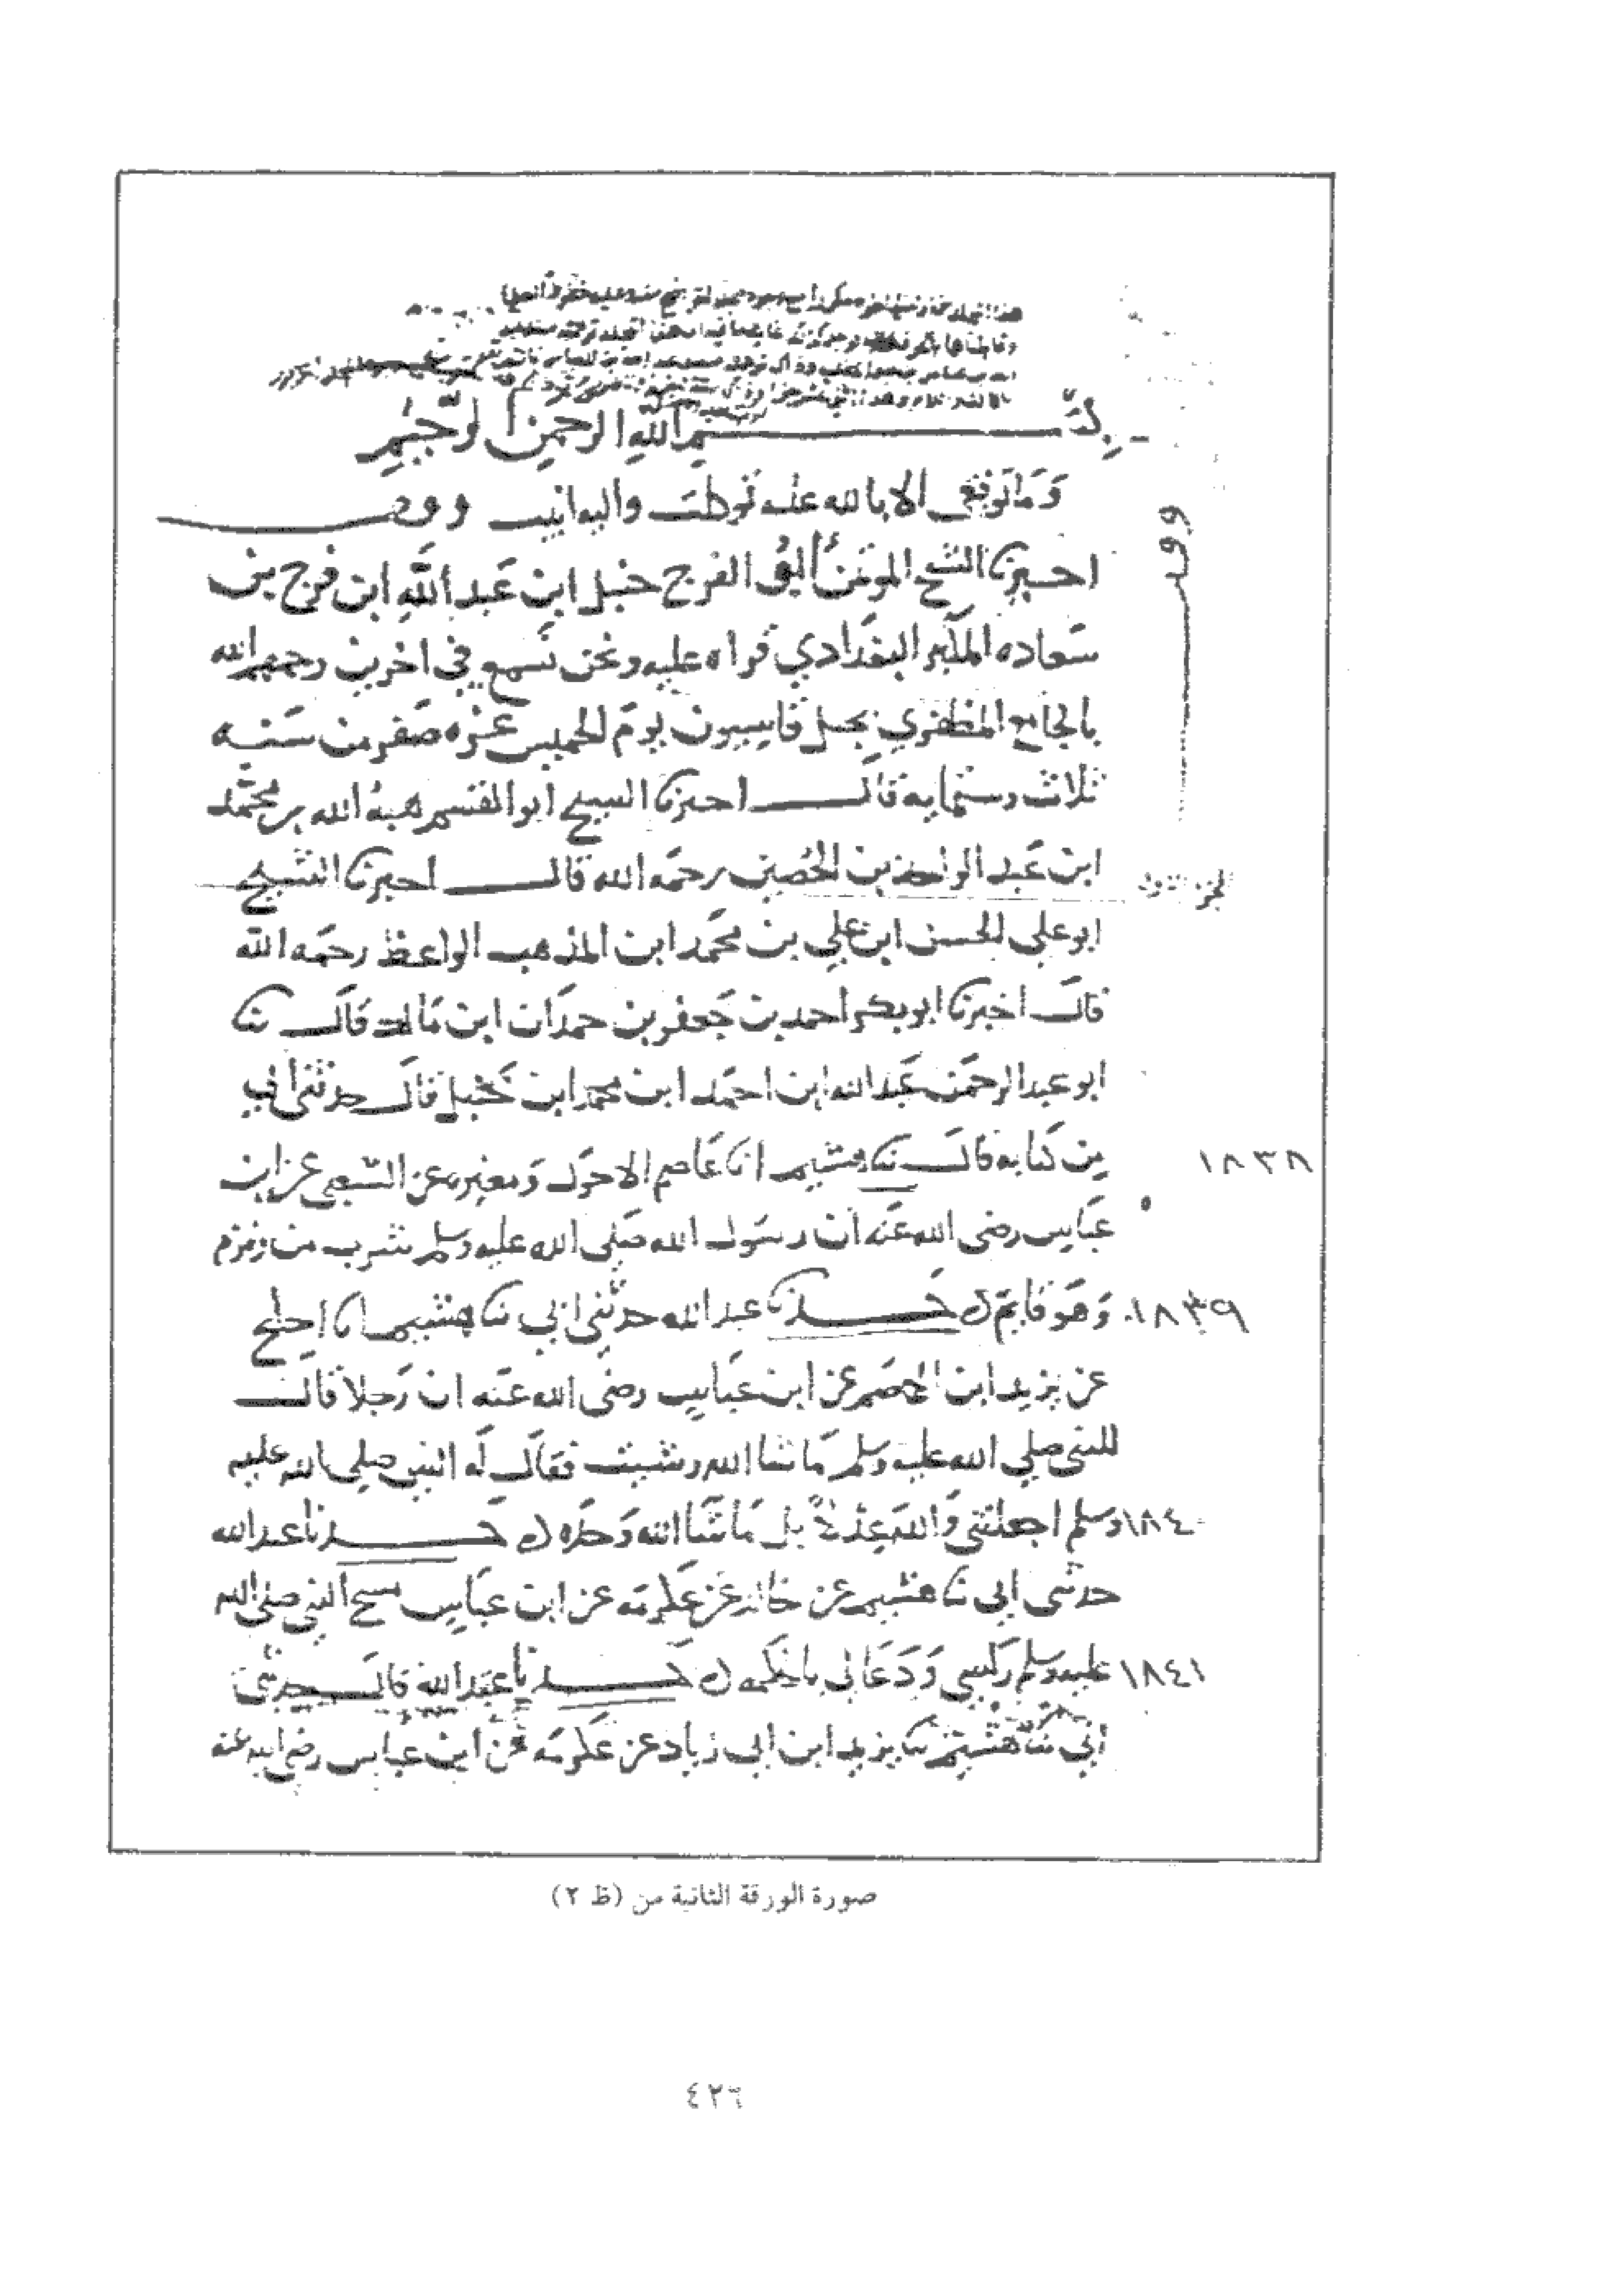 بسم الله الرحمن الرحيم
وما توفيقي الا بالله عليه توكلت واليه انيب وقف
وقف
اخبرنا الشيخ الموتمن أبو الفرج حنبل ابن عبد الله ابن فرج بن
سعاده المكبر البغدادي قراه عليه ونحن نسمع في اخرين رحمهم الله
بالجامع المظفري بجبل قاسيون يوم الخميس غره صفر من سنه
ثلاث وستمايه قال اخبرنا الشيخ ابو القسم هبه الله بن محمد
ابن عبد الواحد بن الحصين رحمه الله قال اخبرنا الشيخ
ابو علي الحسن ابن علي بن محمد ابن المذهب الواعظ رحمه الله
قال اخبرنا ابو بكر احمد بن جعفر بن حمدان ابن مالك قال ثنا
ابو عبد الرحمن عبد الله ابن احمد ابن محمد ابن حنبل قال حدثني أبي
١٨٣٨ من كتابه قال ثنا هشيم انا عاصم الاحول ومغيره عن الشعبي عن ابن
عباس رضي الله عنه ان رسول الله صلى الله عليه وسلم شرب من زمزم
١٨٣٩ وهو قايم حدثنا عبد الله حدثني ابي ثنا هشيم انا اجلح
عن يزيد ابن الاصم عن ابن عباس رضي الله عنه ان رجلا قال
للنبي صلي الله عليه وسلم ما شا الله وشيت فقال له النبي صلي الله عليه
١٨٤٠ وسلم اجعلتني والله عدلا بل ما شا الله وحده حدثنا عبد الله
حدثني ابي ثنا هشيم عن خالد عن عكرمه عن ابن عباس مسح النبي صلى الله
١٨٤١ عليه وسلم راسي ودعا لي بالحكمه حدثنا عبد الله قال حدثني
أبي ثنا هشيم ثنا يزيد ابن ابي زياد عن عكرمه عن ابن عباس رضي الله عنه
صورة الورقة الثانية من (ظ ٢)
٤٢٦